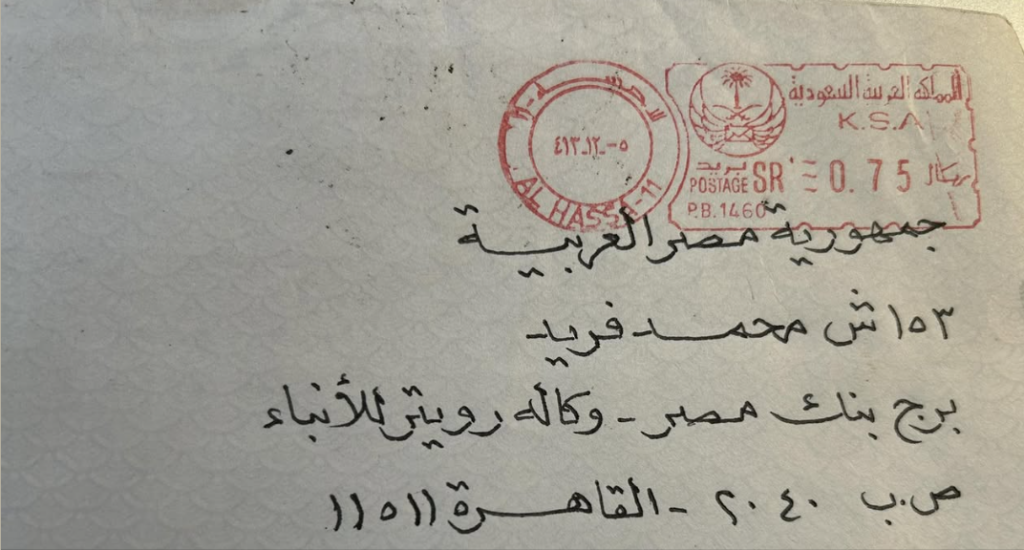 المملكة العربية السعودية
K.S.A
بريد
POSTAGE SR 0.75 ريال
P.B.1460
٤١٣-١٢-٠٥
AL HASSA-11
جمهورية مصر العربية
١٥٣ ش محمد فريد
برج بنك مصر - وكاله رويتر للأنباء
ص.ب ٢٠٤٠ - القاهرة ١١٥١١